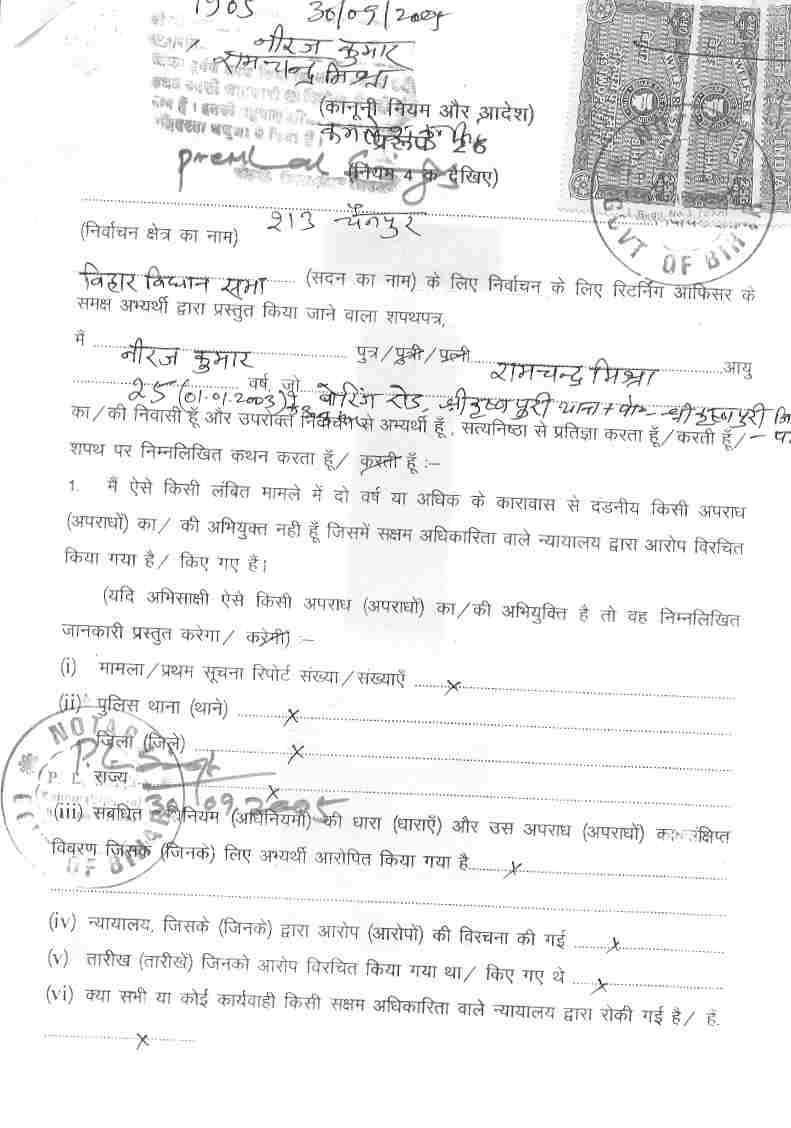 1905 30/09/2005
नीरज कुमार
रामचन्द्र मिश्रा
(कानूनी नियम और आदेश)
प्ररूप 26
(नियम 4 क देखिए)
213 चैनपुर
(निर्वाचन क्षेत्र का नाम)
बिहार विधान सभा (सदन का नाम) के लिए निर्वाचन के लिए रिटर्निंग ऑफिसर के
समक्ष अभ्यर्थी द्वारा प्रस्तुत किया जाने वाला शपथपत्र,
मैं नीरज कुमार पुत्र/पुत्री/पत्नी रामचन्द्र मिश्रा आयु
25 (01.01.2003) वर्ष, जो बोरिंग रोड, श्रीकृष्ण पुरी थाना + पो०- श्री कृष्ण पुरी
का/की निवासी हूँ और उपरोक्त निर्वाचन से अभ्यर्थी हूँ, सत्यनिष्ठा से प्रतिज्ञा करता हूँ/करती हूँ/
शपथ पर निम्नलिखित कथन करता हूँ/ करती हूँ :–
1. मैं ऐसे किसी लंबित मामले में दो वर्ष या अधिक के कारावास से दंडनीय किसी अपराध
(अपराधों) का/ की अभियुक्त नही हूँ जिसमें सक्षम अधिकारिता वाले न्यायालय द्वारा आरोप विरचित
किया गया है/ किए गए हैं।
(यदि अभिसाक्षी ऐसे किसी अपराध (अपराधों) का/की अभियुक्ति है तो वह निम्नलिखित
जानकारी प्रस्तुत करेगा/ करेगी) :–
(i) मामला/प्रथम सूचना रिपोर्ट संख्या/संख्याएँ x
(ii) पुलिस थाना (थाने) x
जिला (जिले) x
राज्य x
30/09.2005
(iii) संबंधित अधिनियम (अधिनियमों) की धारा (धाराएँ) और उस अपराध (अपराधों) का संक्षिप्त
विवरण जिसके (जिनके) लिए अभ्यर्थी आरोपित किया गया है x
(iv) न्यायालय, जिसके (जिनके) द्वारा आरोप (आरोपों) की विरचना की गई x
(v) तारीख (तारीखें) जिनको आरोप विरचित किया गया था/ किए गए थे x
(vi) क्या सभी या कोई कार्यवाही किसी सक्षम अधिकारिता वाले न्यायालय द्वारा रोकी गई है/ हैं.
x
GOVT OF BIHAR
NOTARY
OF BIHAR
INDIA